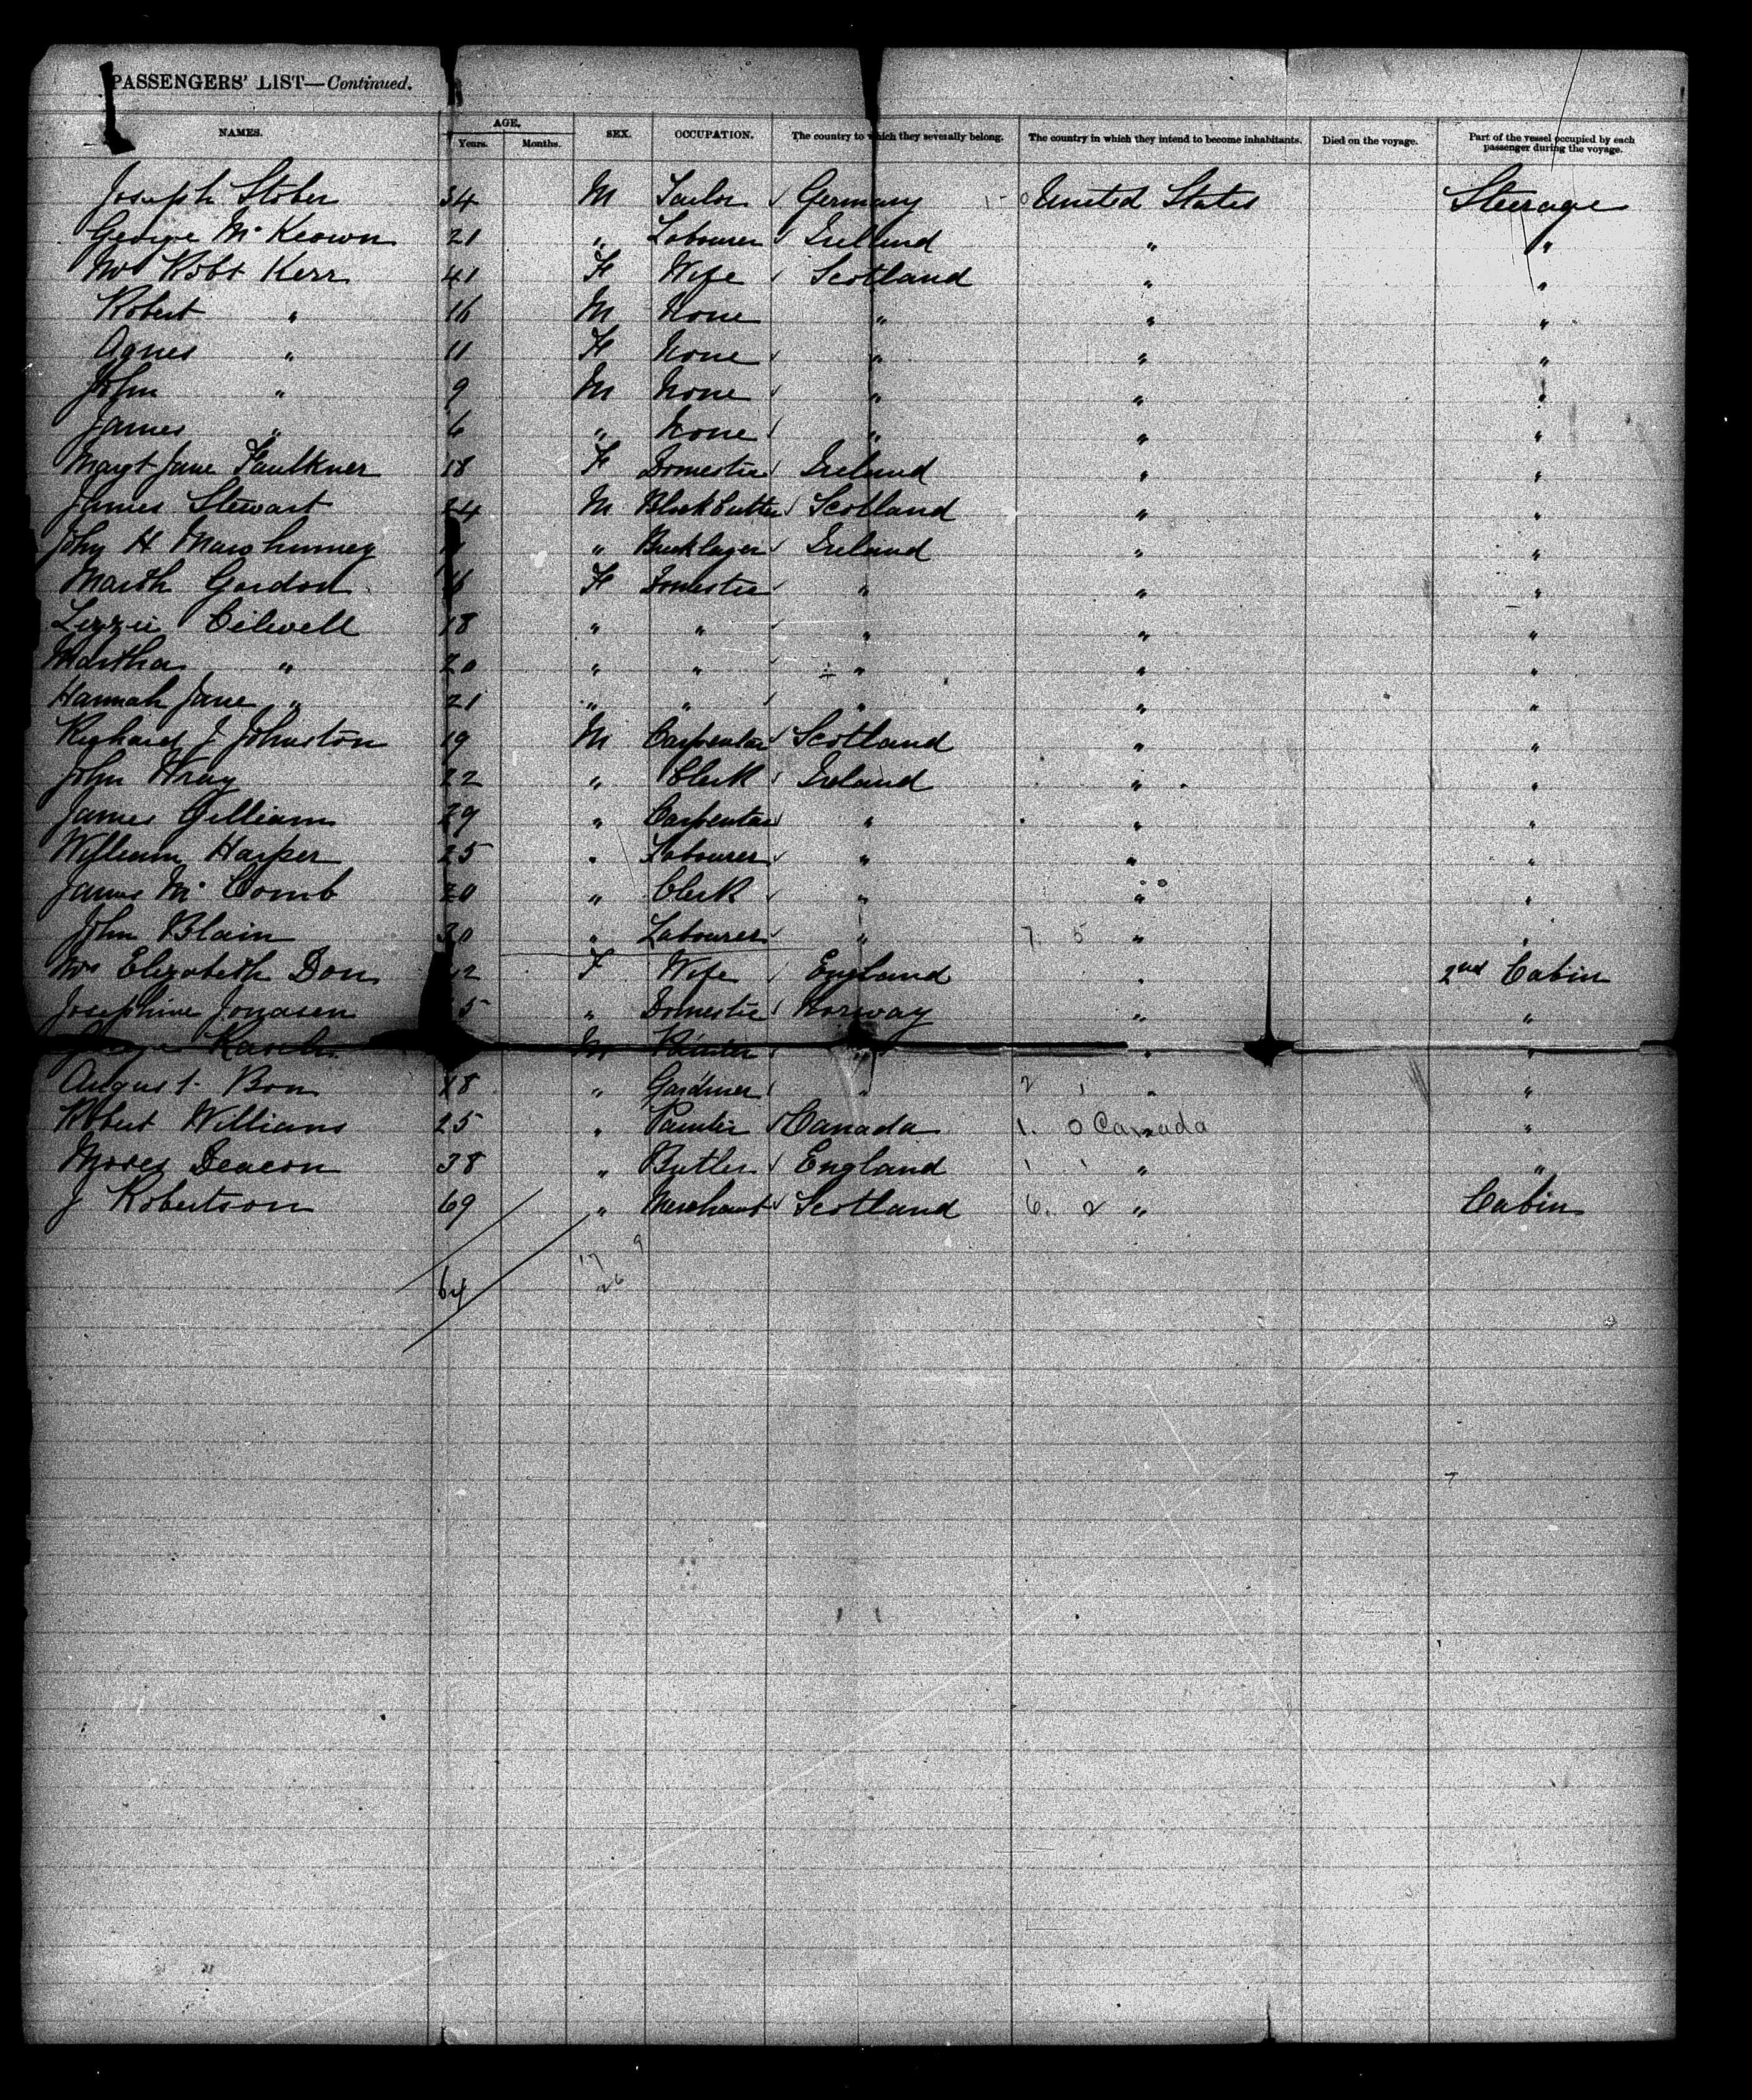 PASSENGERS' LIST—Continued.
NAMES. AGE. Years. Months. SEX. OCCUPATION. The country to which they severally belong. The country in which they intend to become inhabitants. Died on the voyage. Part of the vessel occupied by each passenger during the voyage.
Joseph Stober 34 M Tailor Germany United States Steerage
George McKeown 21 " Labourer Ireland " "
Mrs Robt Kerr 41 F Wife Scotland " "
Robert " 16 M None " " "
Agnes " 11 F None " " "
John " 9 M None " " "
James " 6 " None " " "
Margt Jane Faulkner 18 F Domestic Ireland " "
James Stewart 24 M Block Cutter Scotland " "
John H Mawhinney " Bricklayer Ireland " "
Marth Gordon 16 F Domestic " " "
Lizzie 18 " " " " "
Martha " 20 " " " " "
Hannah Jane " 21 " " " " "
Richard J Johnston 19 M Carpenter Scotland " "
John Wray 22 " Clerk Ireland " "
James Gilliam 29 " Carpenter " " "
William Harper 25 " Labourer " " "
James McComb 20 " Clerk " " "
John Blain 30 " Labourer " 7. 5 " "
Mrs Elizabeth Don F Wife England " 2nd Cabin
Josephine Jonasen " Domestic Norway " "
M Painter " " "
August Bon 18 " Gardiner " 2 1 " "
Robert Williams 25 " Painter Canada 1. 0 Canada "
Moses Deacon 38 " Butler England 1 1 " "
J Robertson 69 " Merchant Scotland 6. 2 " Cabin
17 9
64 26